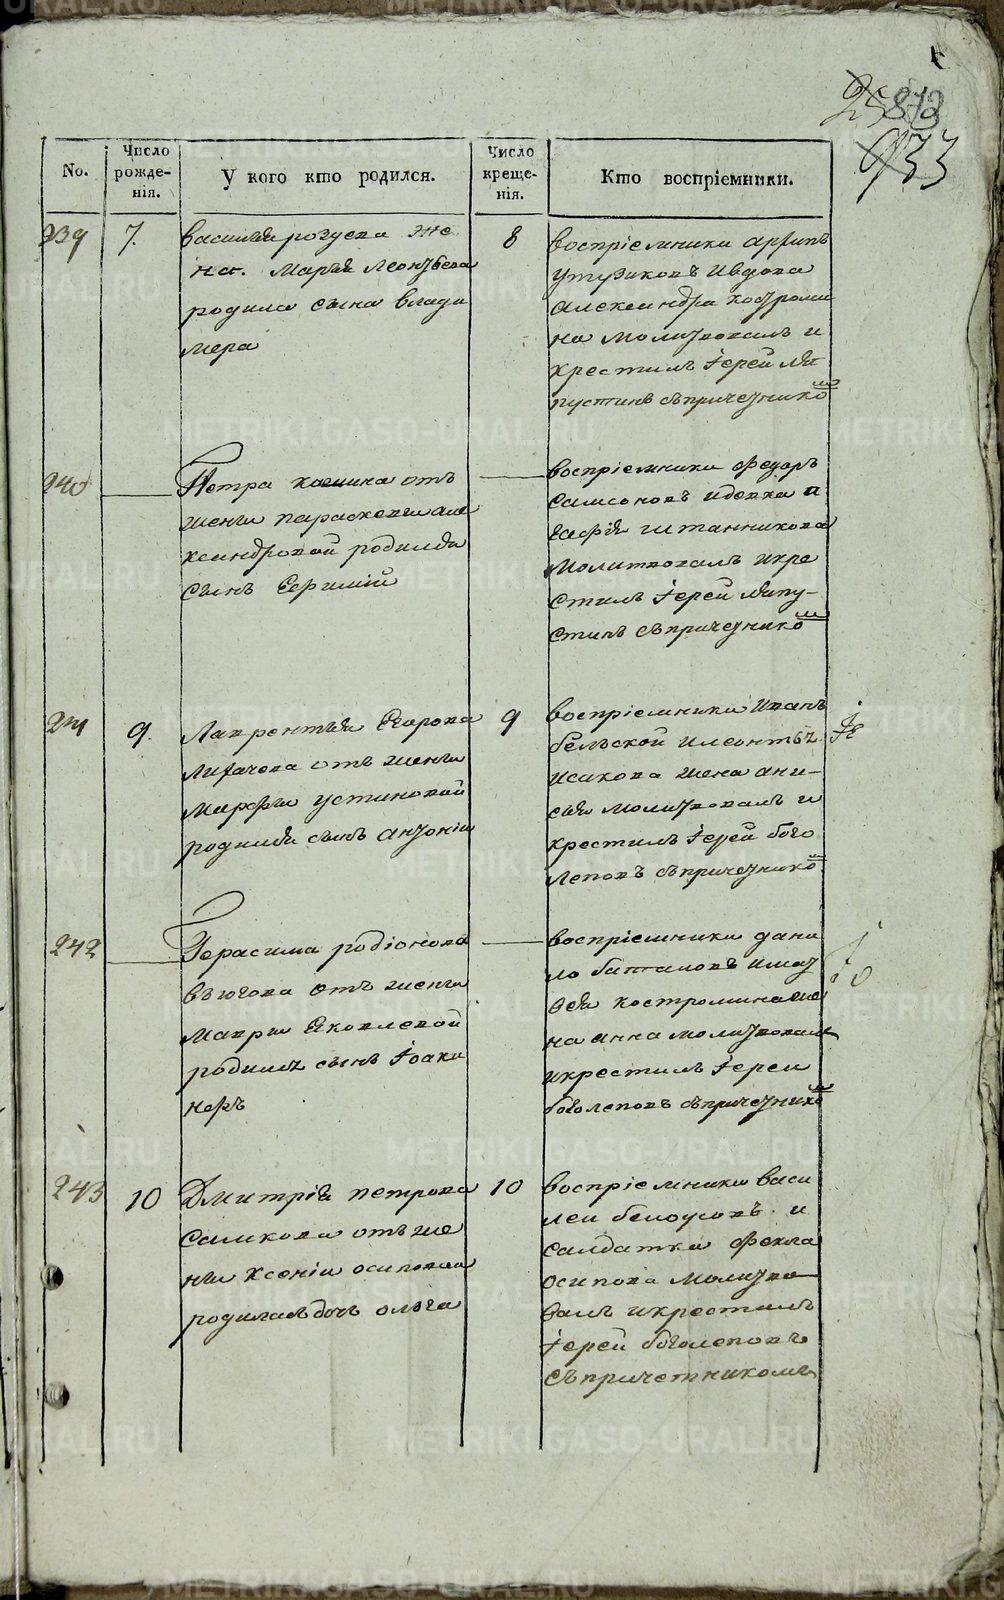 258
873
933
No.
Число рожде-нія.
У кого кто родился.
Число креще-нія.
Кто воспріемники.
239 7.
василья рогуева же
на. Марья Леонтьева
родила сына влади
мера
8
воспріемники архипъ
утузиковъ ивдова
александра костроми
на молитвовалъ и
крестилъ Іерей Ля
пустинъ съпричетнико
240
Петра кошина отъ
жены параскевы але
ксандровой родился
сынъ Ефимій
воспріемники федоръ
самсоновъ идевка а
гафія штанникова
молитвовалъ икре
стилъ Іерей ляпу-
стинъ съпричетнико
241 9.
Лаврентья Егорова
лихачева отъ жены
Марфы устиновой
родился сынъ антоній
9
воспріемники Иванъ
бельской илеонтья
исакова жена ани-
сья молитвовалъ и
крестилъ Іерей бого
леповъ съпричетнико
242
Герасима родіонова
отъ жены
Мавры Яковлевой
родился сынъ Іоаки
воспріемники дани
ло баталовъ имат
вея костромина же
на анна молитвовалъ
икрестилъ Іереи
боголеповъ съпричетнико
243 10
Дмитрія петрова
самкова отъ же
ны ксеніи осиповы
родилась дочь ольга
10
воспріемники васи
леи белоусовъ. и
салдатка фекла
осипова молитво
валъ икрестилъ
Іерей боголеповъ
съпричетникомъ
METRIKI.GASO-URAL.RU